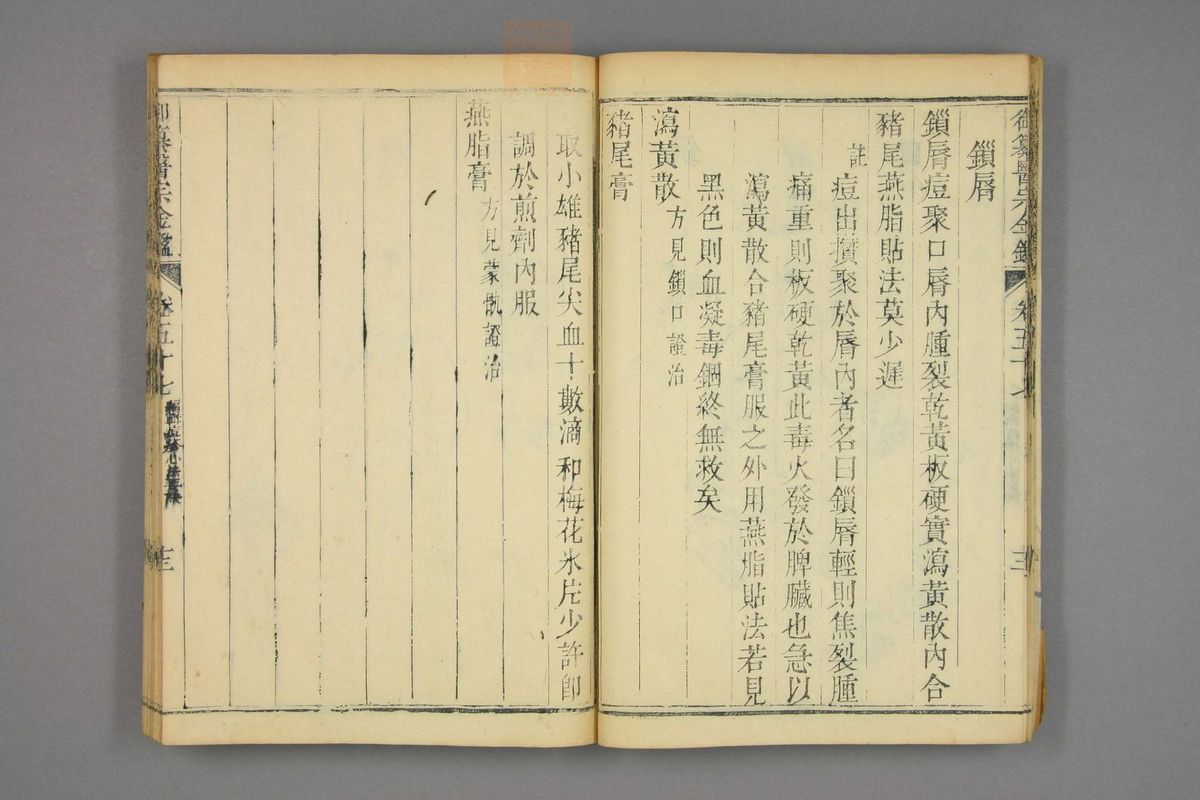 御纂醫宗金鑑 卷五十七 三
鎖唇
鎖唇痘聚口唇內腫裂乾黃板硬實瀉黃散內合
豬尾燕脂貼法莫少遲
註
痘出攢聚於唇內者名曰鎖唇輕則焦裂腫
痛重則板硬乾黃此毒火發於脾臟也急以
瀉黃散合豬尾膏服之外用燕脂貼法若見
黑色則血凝毒錮終無救矣
瀉黃散 方見鎖口證治
豬尾膏
取小雄豬尾尖血十數滴和梅花氷片少許卽
調於煎劑內服
燕脂膏 方見蒙骩證治
御纂醫宗金鑑 卷五十七